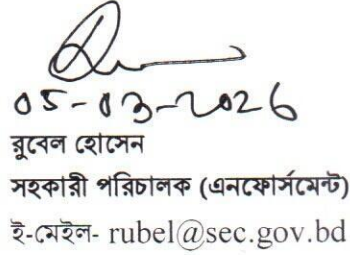 05-03-2026
রুবেল হোসেন
সহকারী পরিচালক (এনফোর্সমেন্ট)
ই-মেইল- rubel@sec.gov.bd